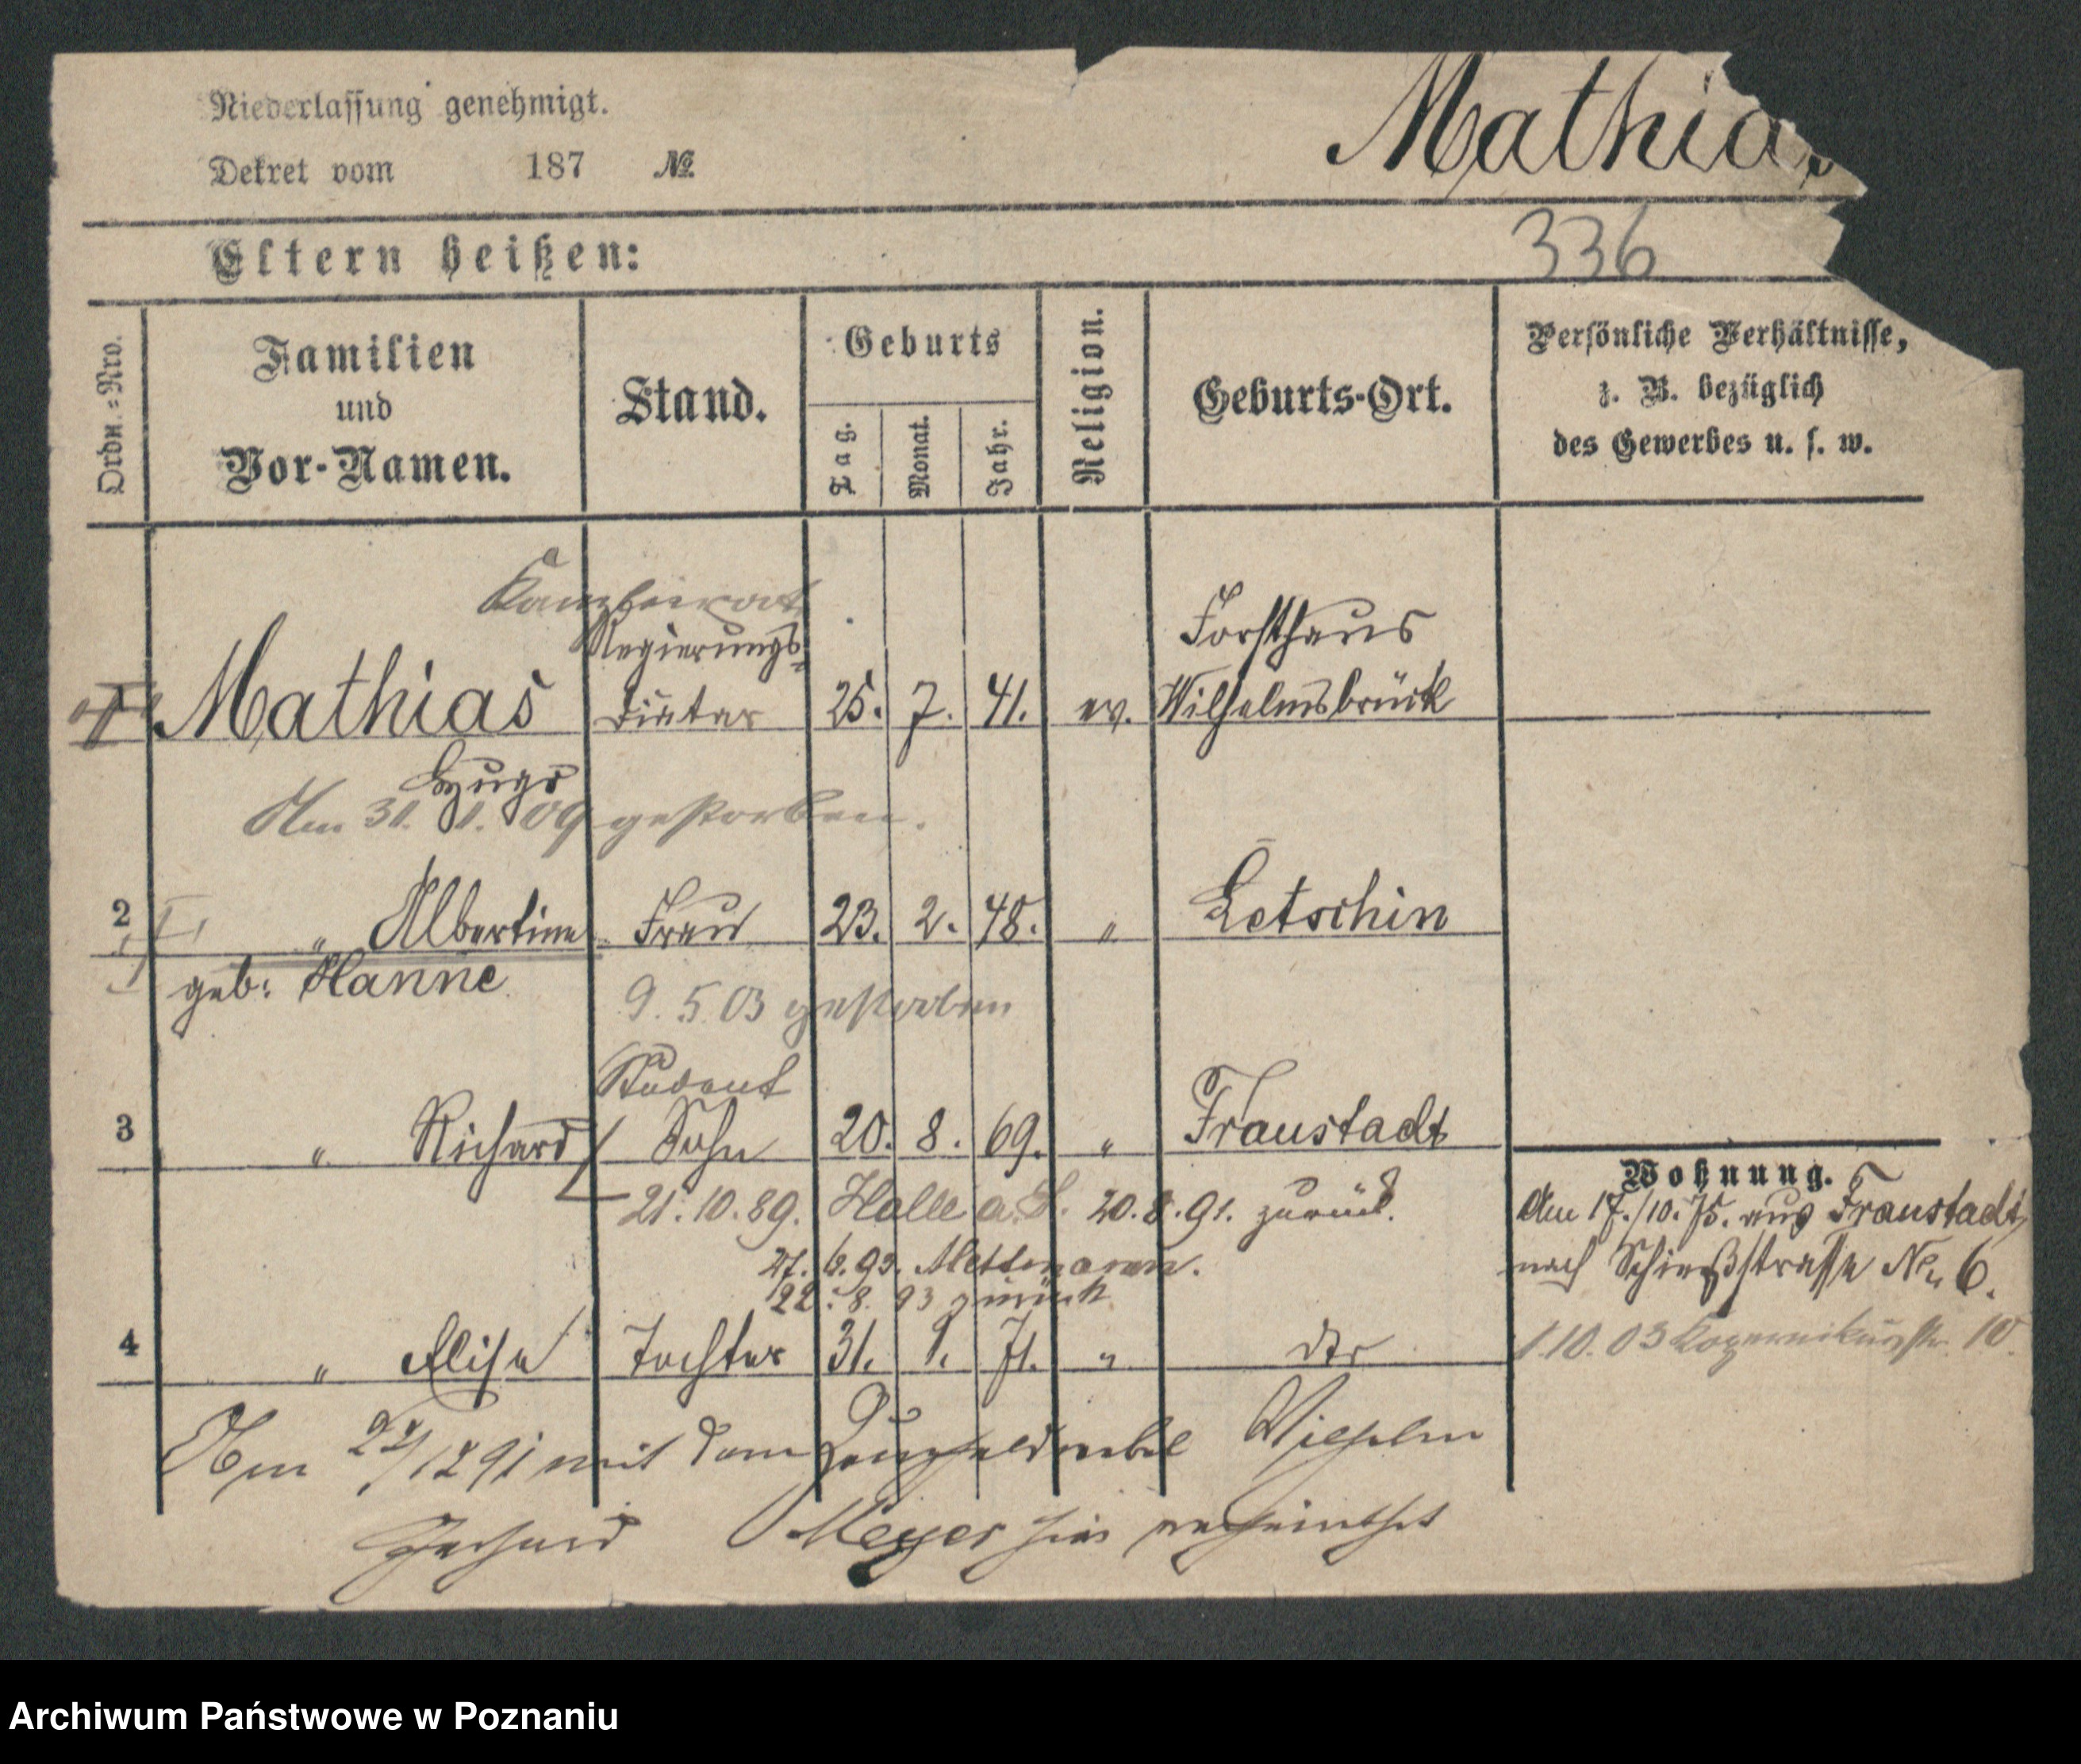 Niederlassung genehmigt.
Mathias
Dekret vom 187 №
Eltern heißen:
336
Ordn.=Nro.
Familien und Vor-Namen.
Stand.
Geburts
Tag. Monat. Jahr.
Religion.
Geburts-Ort.
Persönliche Verhältnisse,
z. B. bezüglich
des Gewerbes u. s. w.
Kanzleirat
Regierungs-
Mathias Diätar 25. 7. 41. ev. Forsthaus Wilhelmsbrück
Hugo
Am 31. 1. 09 gestorben.
2 " Albertine Frau 23. 2. 48. " Letschin
geb: Hanne
9. 5. 03 gestorben
Student
3 " Richard Sohn 20. 8. 69. " Fraustadt
21. 10. 89. Halle a. S. 20. 8. 91. zurück.
27. 6. 93. Mettmann.
22. 8. 93 zurück
4 " Elise Tochter 31. 1. 71. " dto
Wohnung.
Am 17./10. 75. aus Fraustadt
nach Schießstraße No 6.
1. 10. 03 Kopernikusstr. 10.
Am 22/12 91 mit dem Zeugfeldwebel Wilhelm
Gerhard Meyer hier verheirathet
Archiwum Państwowe w Poznaniu